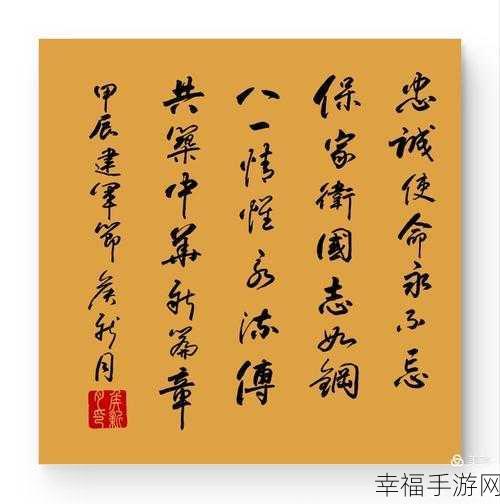 忠誠使命永不忘
保家衛國志如鋼
八一情懷永流傳
共築中華新篇章
甲辰建军節侯新月
幸福手游网